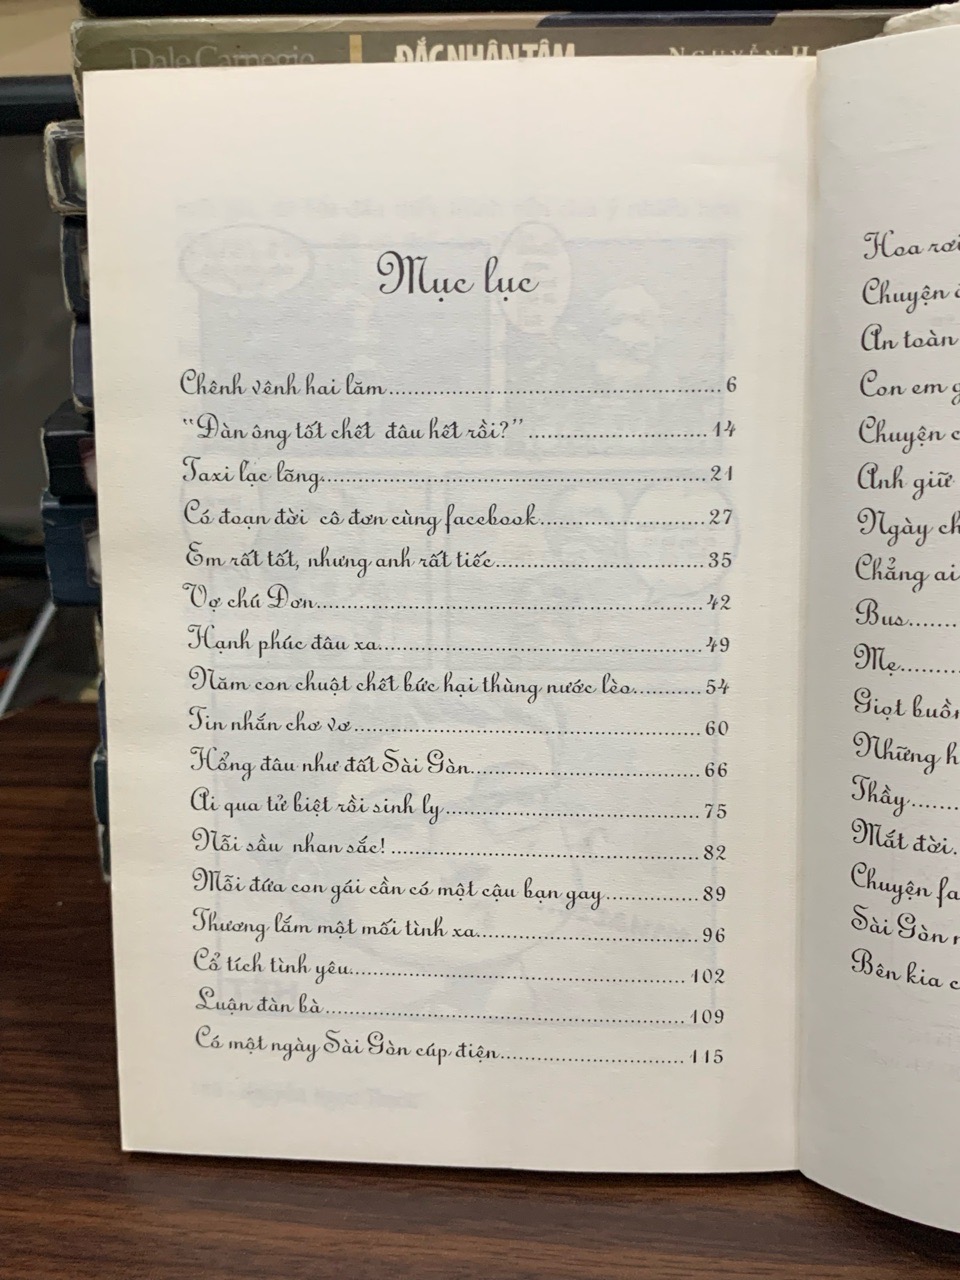 Dale Carnegie
ĐẮC NHÂN TÂM
Mục lục
Chênh vênh hai lăm........6
“Đàn ông tốt chết đâu hết rồi?”........14
Taxi lạc lõng........21
Có đoạn đời cô đơn cùng facebook........27
Em rất tốt, nhưng anh rất tiếc........35
Vợ chú Đơn........42
Hạnh phúc đâu xa........49
Năm con chuột chết bức hại thùng nước lèo........54
Tin nhắn chơ vơ........60
Hổng đâu như đất Sài Gòn........66
Ai qua tử biệt rồi sinh ly........75
Nỗi sầu nhan sắc!........82
Mỗi đứa con gái cần có một cậu bạn gay........89
Thương lắm một mối tình xa........96
Cổ tích tình yêu........102
Luận đàn bà........109
Có một ngày Sài Gòn cúp điện........115
Hoa rơi
Chuyện
An toàn
Con em
Chuyện
Anh giữ
Ngày
Chẳng ai
Bus........
Mẹ........
Giọt buồn
Những
Thầy........
Mắt đời.
Chuyện
Sài Gòn
Bên kia